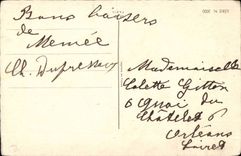 Bons baisers
de
Memée
Ch. Dupressoir
Mademoiselle
Colette Gitton
6 Quai du
Châtelet 6
Orléans
Loiret